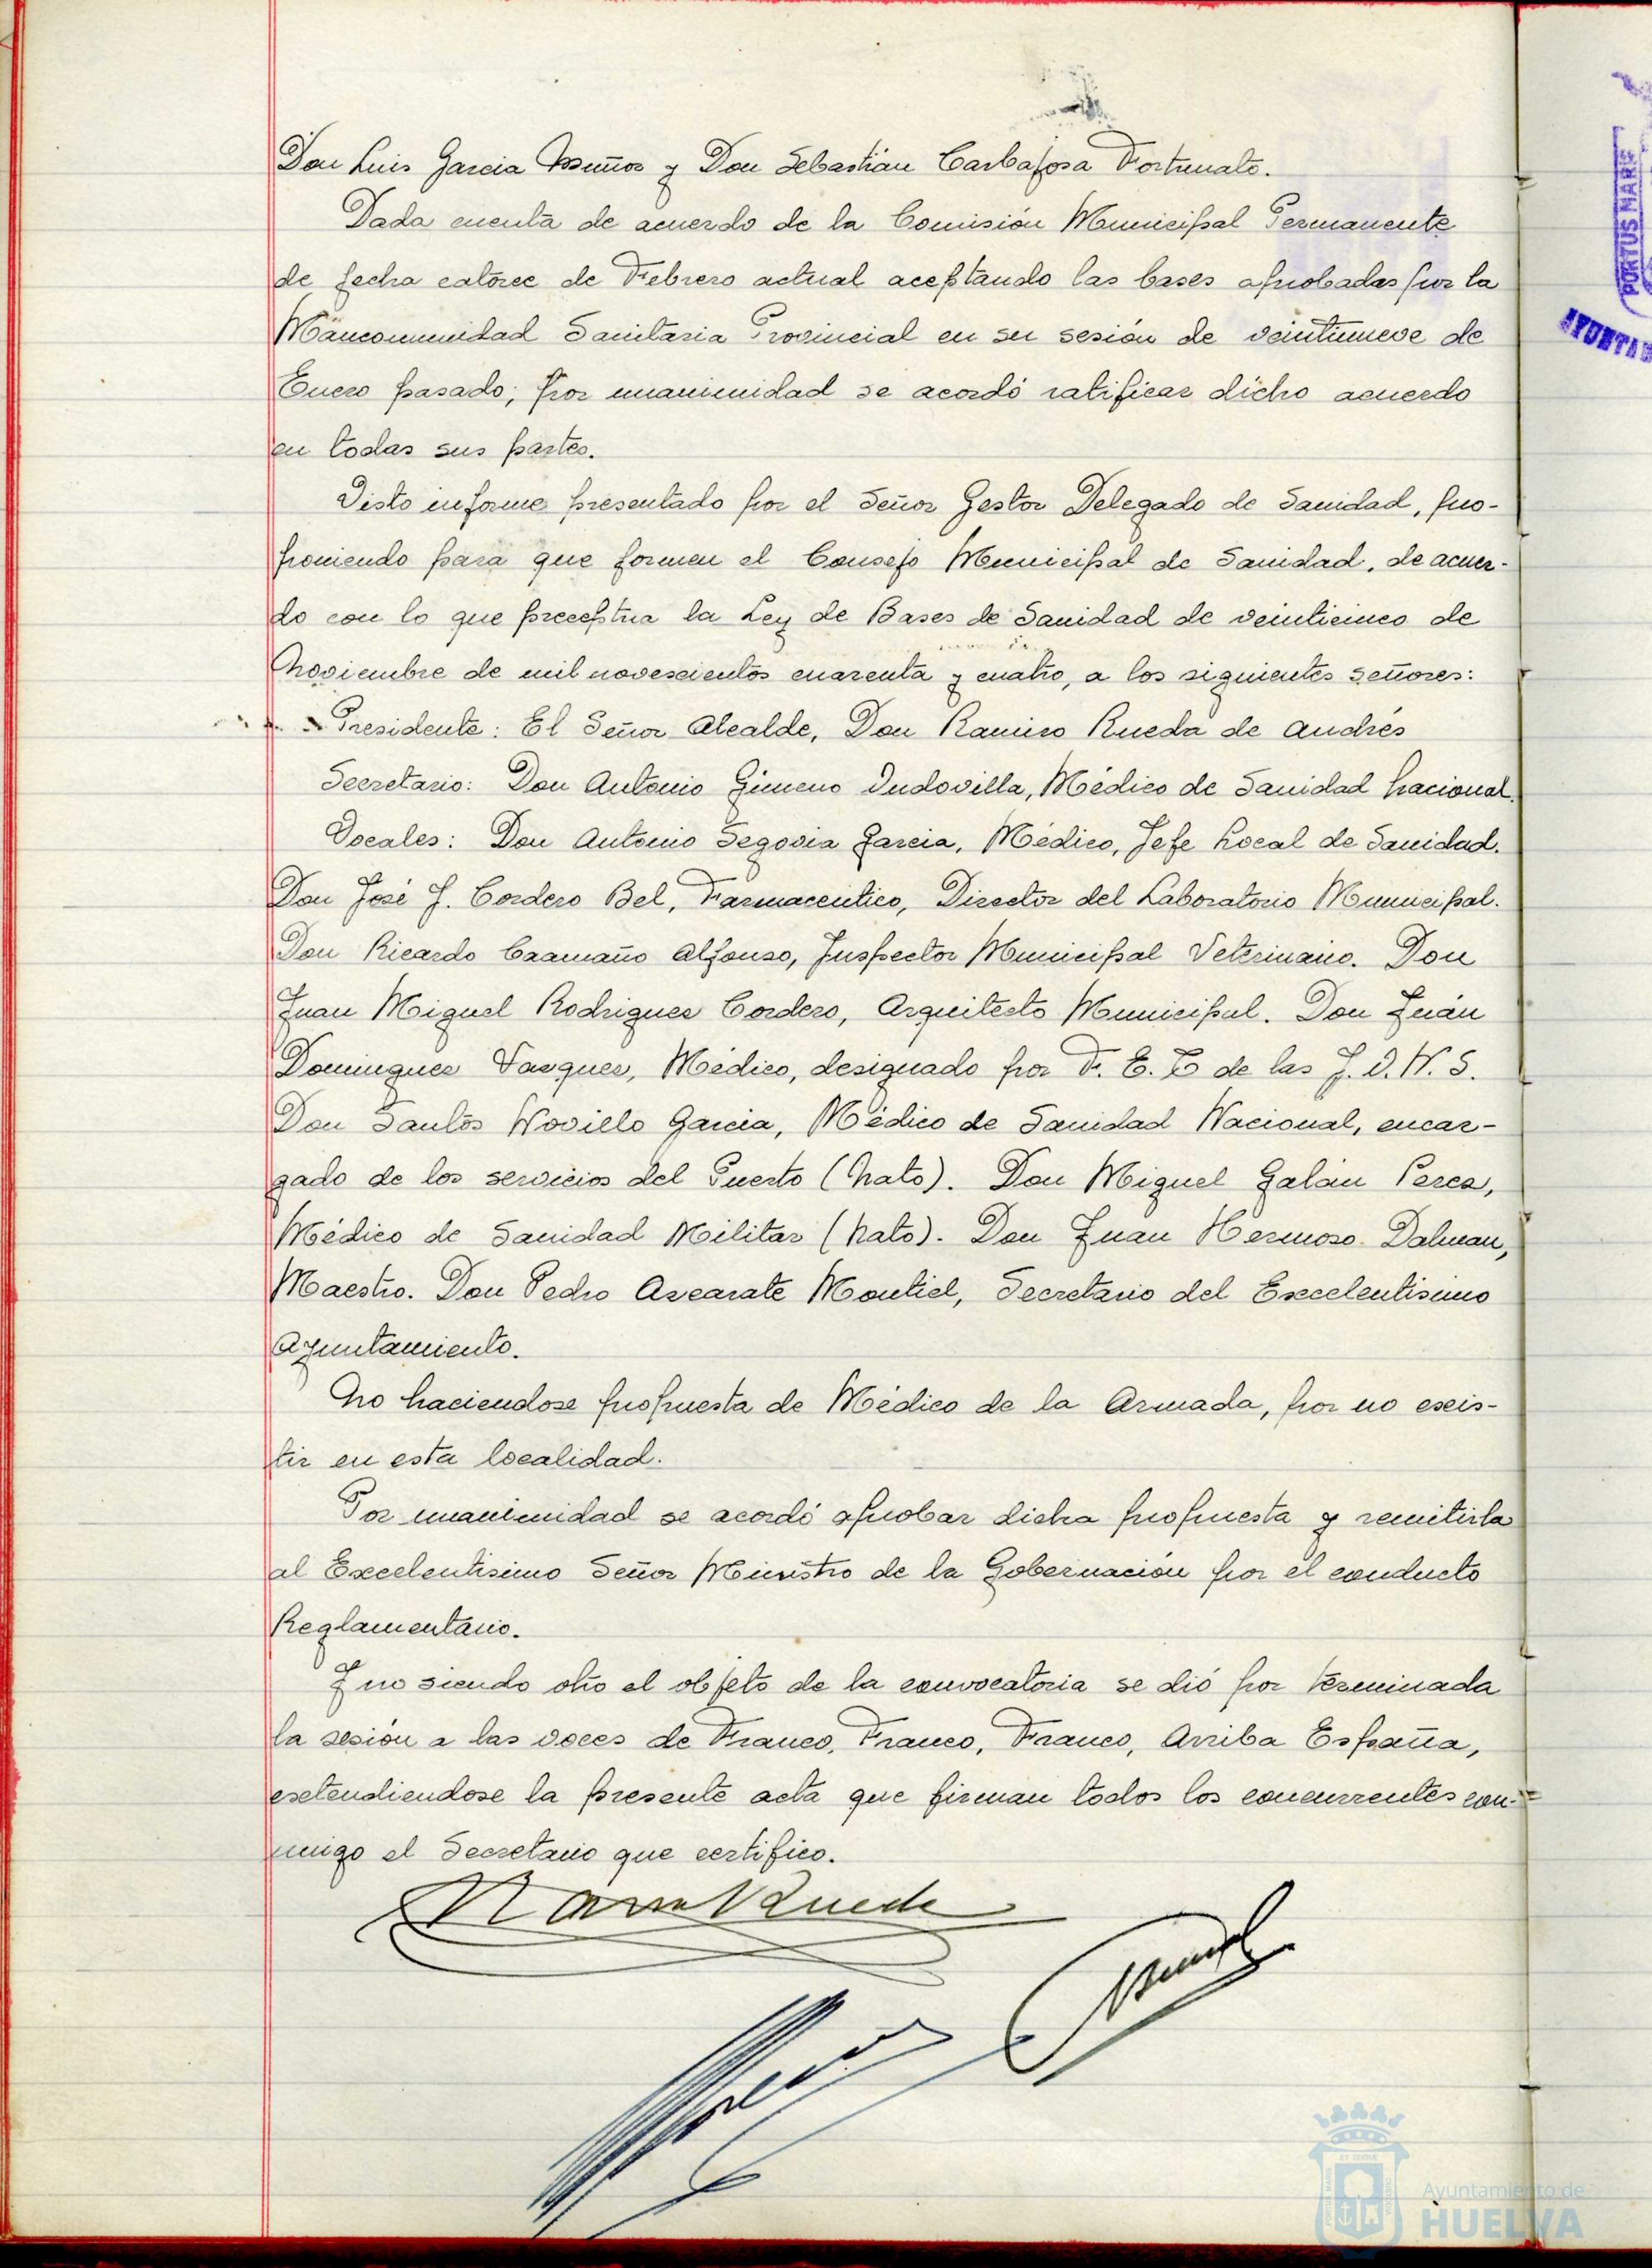 Don Luis Garcia Muñoz y Don Sebastián Carbajosa Fortunato.
Dada cuenta de acuerdo de la Comisión Municipal Permanente
de fecha catorce de Febrero actual aceptando las bases aprobadas por la
Mancomunidad Sanitaria Provincial en su sesión de veintinueve de
Enero pasado; por unanimidad se acordó ratificar dicho acuerdo
en todas sus partes.
Visto informe presentado por el Señor Gestor Delegado de Sanidad, pro-
poniendo para que formen el Consejo Municipal de Sanidad, de acuer-
do con lo que preceptua la Ley de Bases de Sanidad de veinticinco de
Noviembre de mil novescientos cuarenta y cuatro, a los siguientes señores:
Presidente: El Señor Alcalde, Don Ramiro Rueda de Andrés
Secretario: Don Antonio Gimeno Ondovilla, Médico de Sanidad Nacional.
Vocales: Don Antonio Segovia Garcia, Médico, Jefe Local de Sanidad.
Don José J. Cordero Bel, Farmaceutico, Director del Laboratorio Municipal.
Don Ricardo Caamaño Alfonso, Inspector Municipal Veterinario. Don
Juan Miguel Rodriguez Cordero, Arquitecto Municipal. Don Juán
Dominguez Vazquez, Médico, designado por F. E. T. de las J. O. N. S.
Don Santos Novillo Garcia, Médico de Sanidad Nacional, encar-
gado de los servicios del Puerto (Nato). Don Miguel Galán Perez,
Médico de Sanidad Militar (Nato). Don Juan Hermoso Dalman,
Maestro. Don Pedro Azcarate Montiel, Secretario del Excelentisimo
Ayuntamiento.
No haciendose propuesta de Médico de la Armada, por no exis-
tir en esta localidad.
Por unanimidad se acordó aprobar dicha propuesta y remitirla
al Excelentisimo Señor Ministro de la Gobernación por el conducto
Reglamentario.
Y no siendo otro el objeto de la convocatoria se dió por terminada
la sesión a las voces de Franco, Franco, Franco, Arriba España,
extendiendose la presente acta que firman todos los concurrentes con-
migo el Secretario que certifico.
PORTUS MARIS
Ayuntamiento de
HUELVA